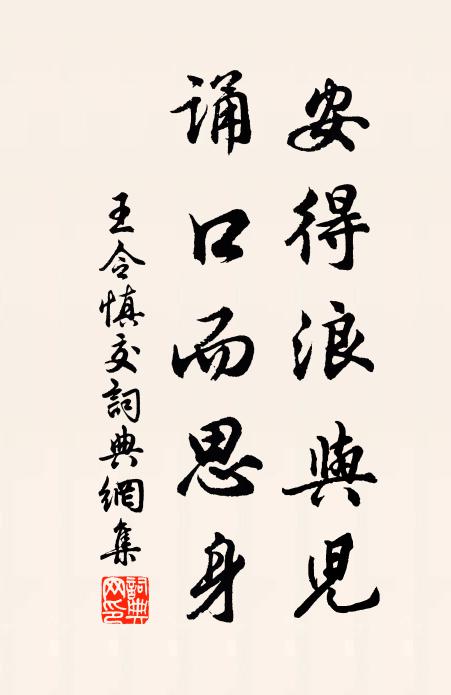 安得浪與兒
诵口而思身
王令慎交詞典網集
詞典网印